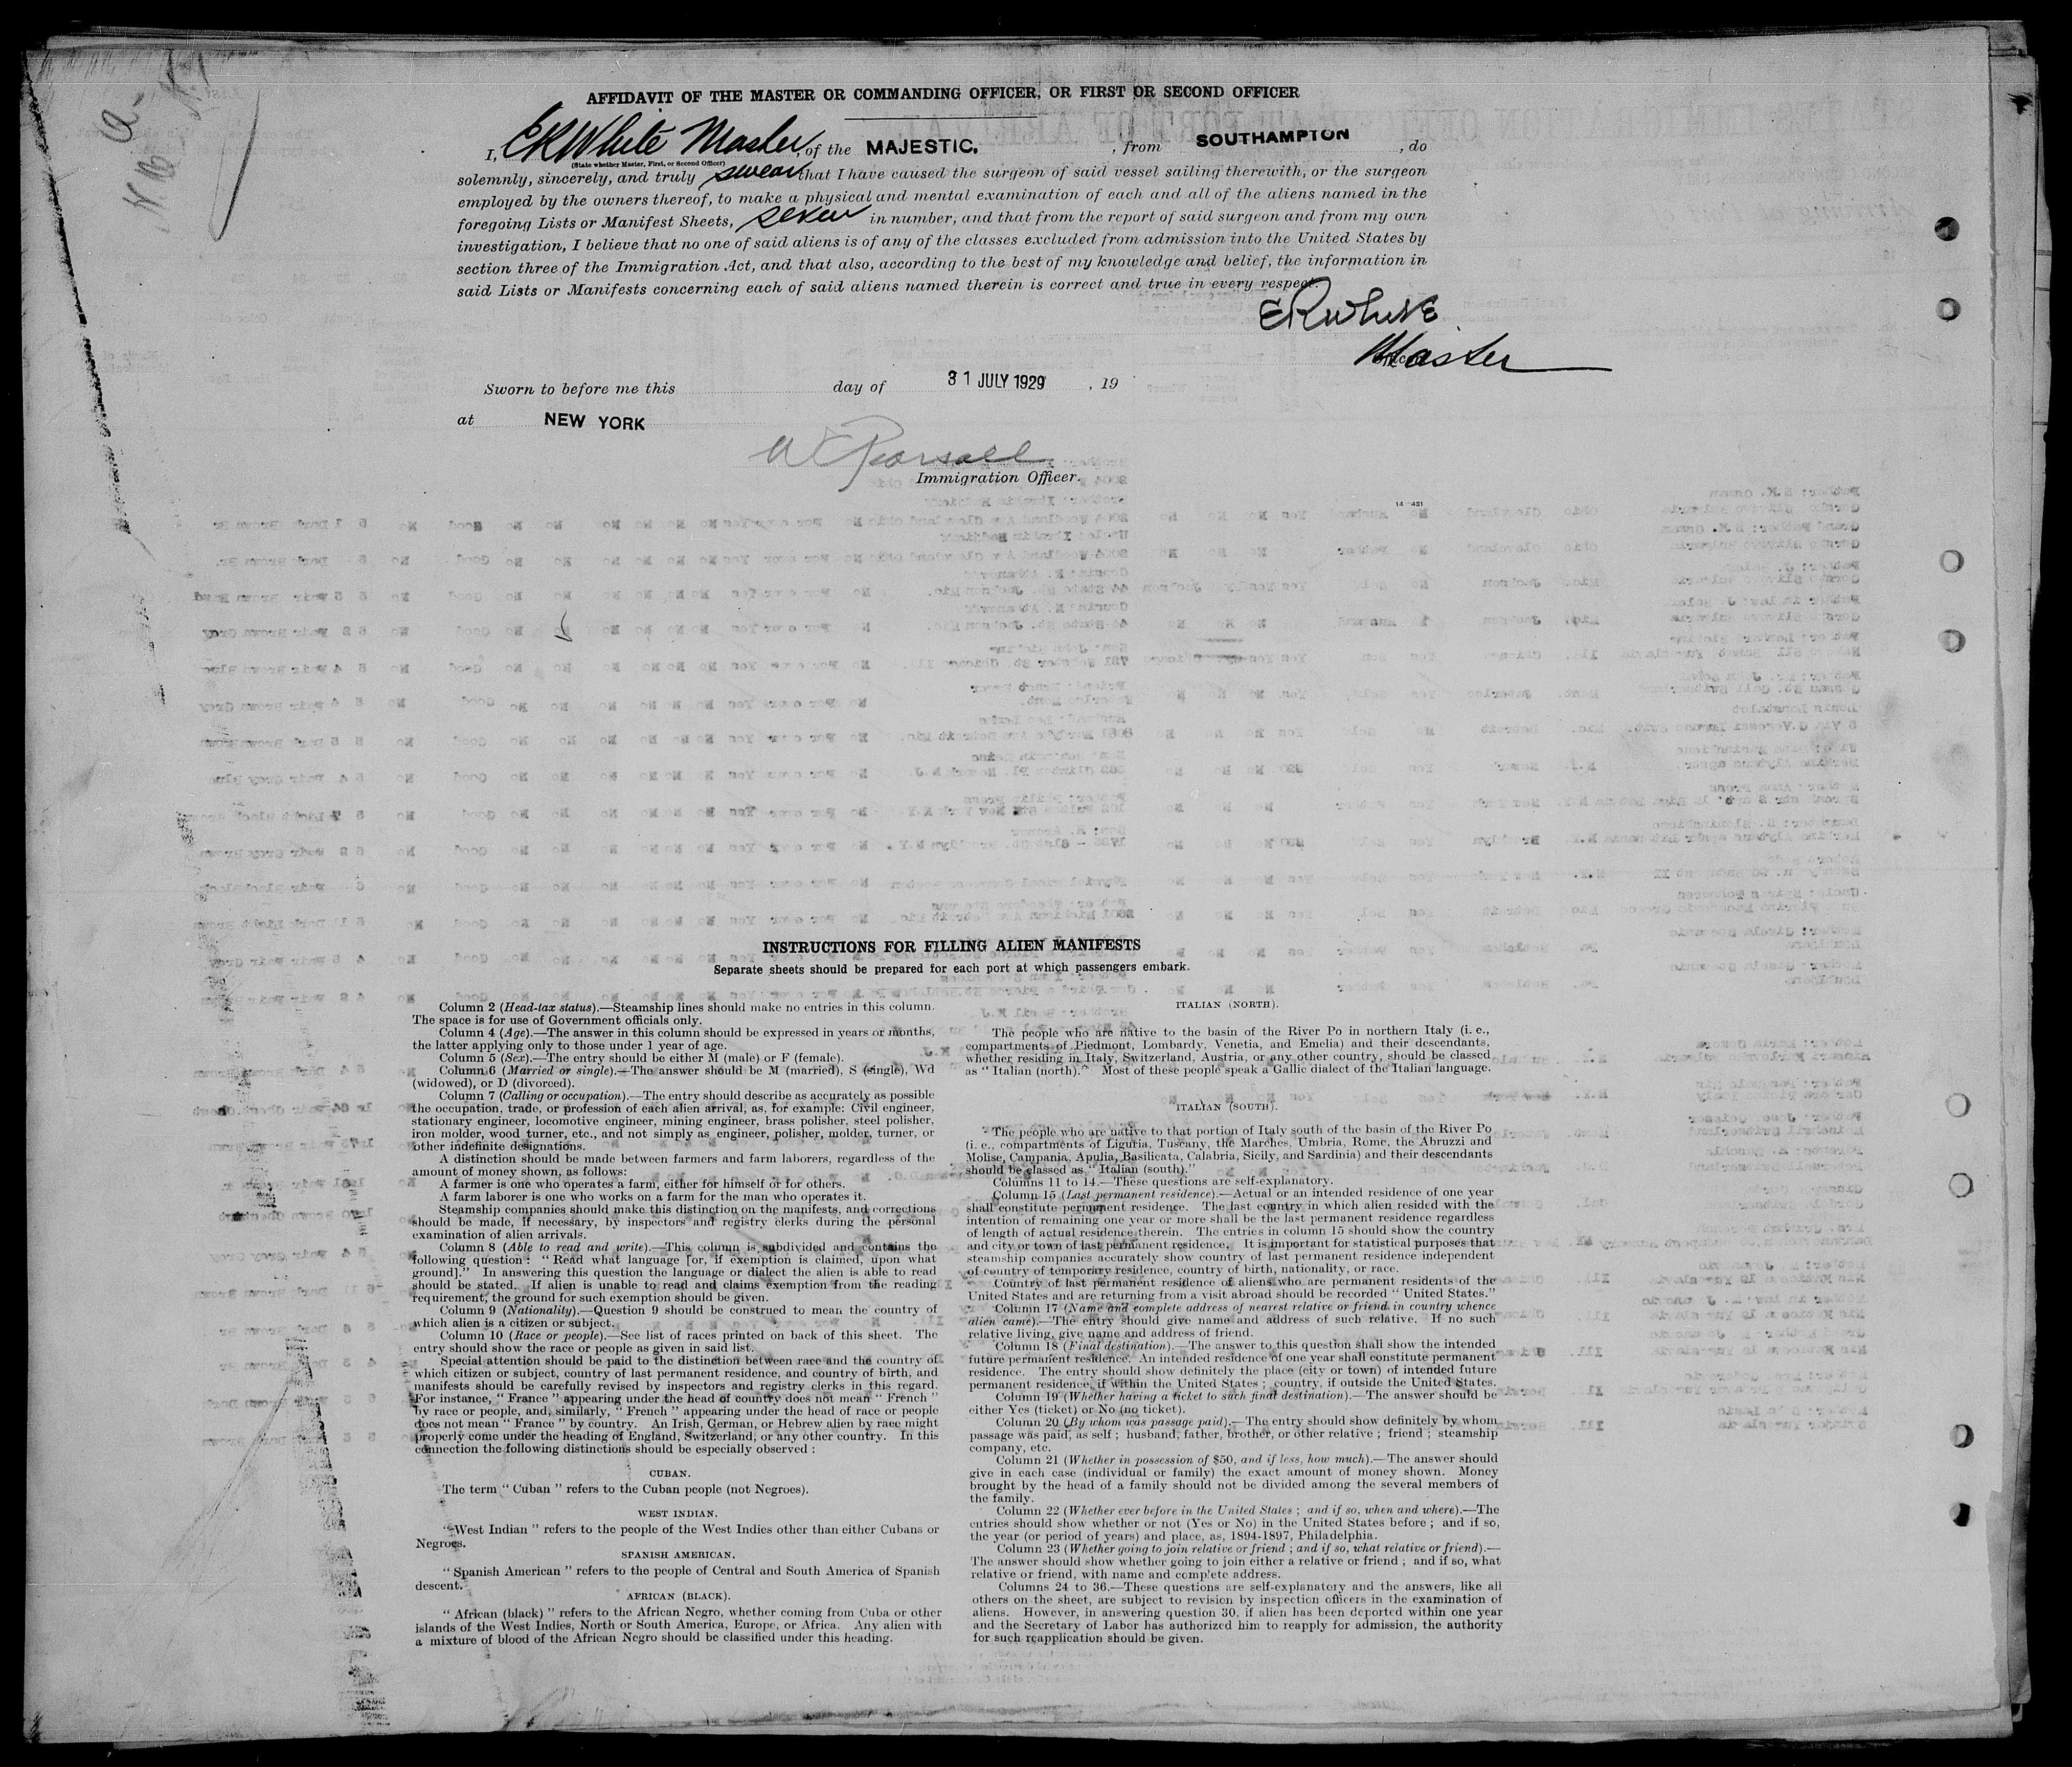 AFFIDAVIT OF THE MASTER OR COMMANDING OFFICER, OR FIRST OR SECOND OFFICER
I, ERWhite Master, of the MAJESTIC. , from SOUTHAMPTON , do
(State whether Master, First, or Second Officer)
solemnly, sincerely, and truly swear that I have caused the surgeon of said vessel sailing therewith, or the surgeon
employed by the owners thereof, to make a physical and mental examination of each and all of the aliens named in the
foregoing Lists or Manifest Sheets, seven in number, and that from the report of said surgeon and from my own
investigation, I believe that no one of said aliens is of any of the classes excluded from admission into the United States by
section three of the Immigration Act, and that also, according to the best of my knowledge and belief, the information in
said Lists or Manifests concerning each of said aliens named therein is correct and true in every respect.
ERWhite
Master
Sworn to before me this day of 31 JULY 1929 , 19
at NEW YORK
Immigration Officer.
14—431
INSTRUCTIONS FOR FILLING ALIEN MANIFESTS
Separate sheets should be prepared for each port at which passengers embark.
Column 2 (Head-tax status).—Steamship lines should make no entries in this column.
The space is for use of Government officials only.
Column 4 (Age).—The answer in this column should be expressed in years or months,
the latter applying only to those under 1 year of age.
Column 5 (Sex).—The entry should be either M (male) or F (female).
Column 6 (Married or single).—The answer should be M (married), S (single), Wd
(widowed), or D (divorced).
Column 7 (Calling or occupation).—The entry should describe as accurately as possible
the occupation, trade, or profession of each alien arrival, as, for example: Civil engineer,
stationary engineer, locomotive engineer, mining engineer, brass polisher, steel polisher,
iron molder, wood turner, etc., and not simply as engineer, polisher, molder, turner, or
other indefinite designations.
A distinction should be made between farmers and farm laborers, regardless of the
amount of money shown, as follows:
A farmer is one who operates a farm, either for himself or for others.
A farm laborer is one who works on a farm for the man who operates it.
Steamship companies should make this distinction on the manifests, and corrections
should be made, if necessary, by inspectors and registry clerks during the personal
examination of alien arrivals.
Column 8 (Able to read and write).—This column is subdivided and contains the
following question: "Read what language [or, if exemption is claimed, upon what
ground]." In answering this question the language or dialect the alien is able to read
should be stated. If alien is unable to read and claims exemption from the reading
requirement, the ground for such exemption should be given.
Column 9 (Nationality).—Question 9 should be construed to mean the country of
which alien is a citizen or subject.
Column 10 (Race or people).—See list of races printed on back of this sheet. The
entry should show the race or people as given in said list.
Special attention should be paid to the distinction between race and the country of
which citizen or subject, country of last permanent residence, and country of birth, and
manifests should be carefully revised by inspectors and registry clerks in this regard.
For instance, "France" appearing under the head of country does not mean "French"
by race or people, and, similarly, "French" appearing under the head of race or people
does not mean "France" by country. An Irish, German, or Hebrew alien by race might
properly come under the heading of England, Switzerland, or any other country. In this
connection the following distinctions should be especially observed:
CUBAN.
The term "Cuban" refers to the Cuban people (not Negroes).
WEST INDIAN.
"West Indian" refers to the people of the West Indies other than either Cubans or
Negroes.
SPANISH AMERICAN.
"Spanish American" refers to the people of Central and South America of Spanish
descent.
AFRICAN (BLACK).
"African (black)" refers to the African Negro, whether coming from Cuba or other
islands of the West Indies, North or South America, Europe, or Africa. Any alien with
a mixture of blood of the African Negro should be classified under this heading.
ITALIAN (NORTH).
The people who are native to the basin of the River Po in northern Italy (i. e.,
compartments of Piedmont, Lombardy, Venetia, and Emelia) and their descendants,
whether residing in Italy, Switzerland, Austria, or any other country, should be classed
as "Italian (north)." Most of these people speak a Gallic dialect of the Italian language.
ITALIAN (SOUTH).
The people who are native to that portion of Italy south of the basin of the River Po
(i. e., compartments of Liguria, Tuscany, the Marches, Umbria, Rome, the Abruzzi and
Molise, Campania, Apulia, Basilicata, Calabria, Sicily, and Sardinia) and their descendants
should be classed as "Italian (south)."
Columns 11 to 14.—These questions are self-explanatory.
Column 15 (Last permanent residence).—Actual or an intended residence of one year
shall constitute permanent residence. The last country in which alien resided with the
intention of remaining one year or more shall be the last permanent residence regardless
of length of actual residence therein. The entries in column 15 should show the country
and city or town of last permanent residence. It is important for statistical purposes that
steamship companies accurately show country of last permanent residence independent
of country of temporary residence, country of birth, nationality, or race.
Country of last permanent residence of aliens who are permanent residents of the
United States and are returning from a visit abroad should be recorded "United States."
Column 17 (Name and complete address of nearest relative or friend in country whence
alien came).—The entry should give name and address of such relative. If no such
relative living, give name and address of friend.
Column 18 (Final destination).—The answer to this question shall show the intended
future permanent residence. An intended residence of one year shall constitute permanent
residence. The entry should show definitely the place (city or town) of intended future
permanent residence, if within the United States; country, if outside the United States.
Column 19 (Whether having a ticket to such final destination).—The answer should be
either Yes (ticket) or No (no ticket).
Column 20 (By whom was passage paid).—The entry should show definitely by whom
passage was paid, as self; husband, father, brother, or other relative; friend; steamship
company, etc.
Column 21 (Whether in possession of $50, and if less, how much).—The answer should
give in each case (individual or family) the exact amount of money shown. Money
brought by the head of a family should not be divided among the several members of
the family.
Column 22 (Whether ever before in the United States; and if so, when and where).—The
entries should show whether or not (Yes or No) in the United States before; and if so,
the year (or period of years) and place, as, 1894-1897, Philadelphia.
Column 23 (Whether going to join relative or friend; and if so, what relative or friend).—
The answer should show whether going to join either a relative or friend; and if so, what
relative or friend, with name and complete address.
Columns 24 to 36.—These questions are self-explanatory and the answers, like all
others on the sheet, are subject to revision by inspection officers in the examination of
aliens. However, in answering question 30, if alien has been deported within one year
and the Secretary of Labor has authorized him to reapply for admission, the authority
for such reapplication should be given.